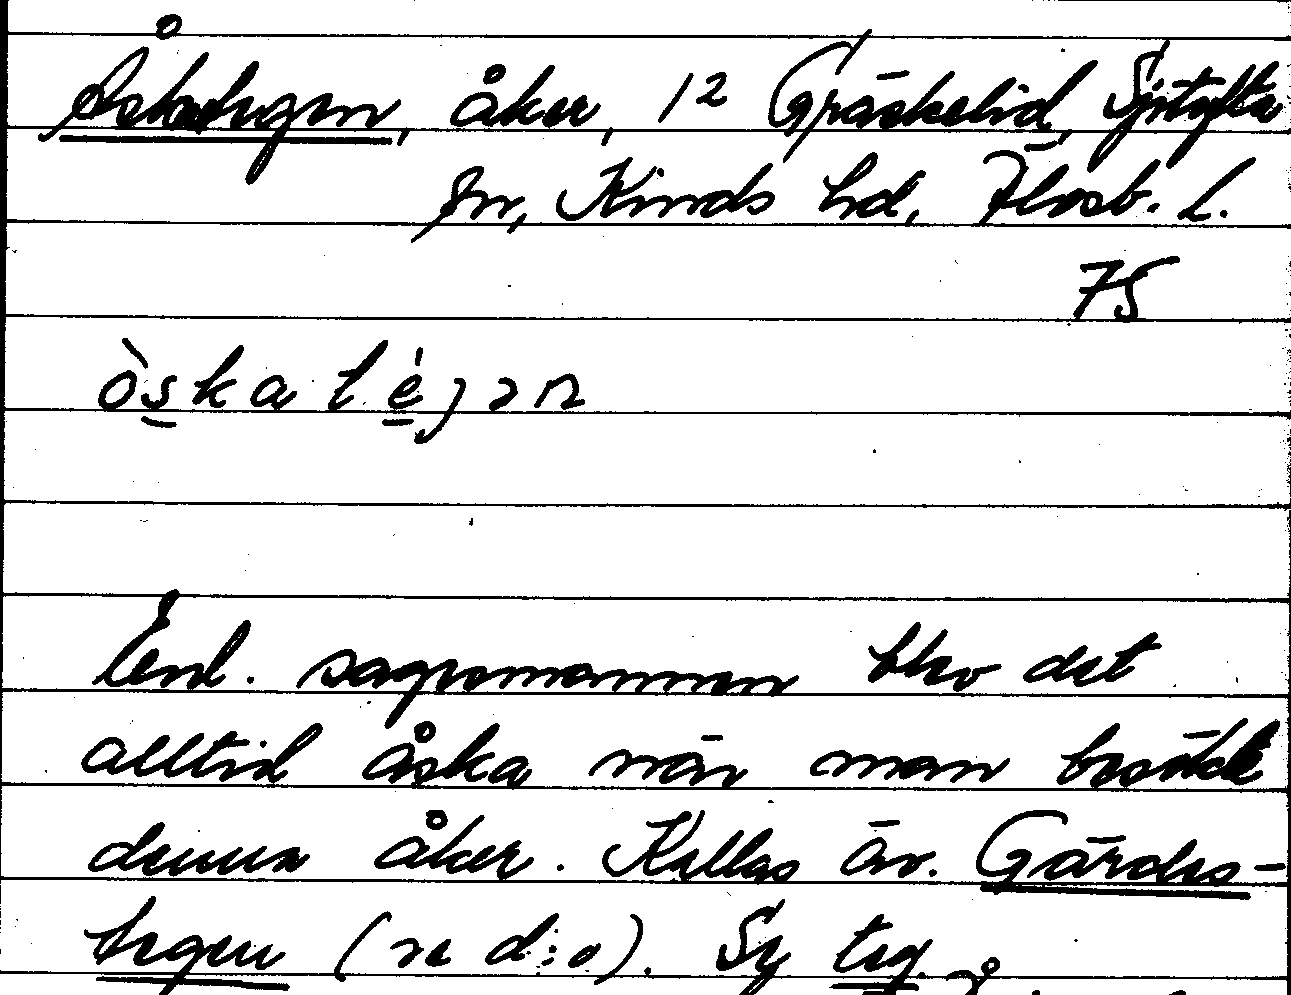 Åskategen, åker, 12 Gräskelid, Sjötofta
sn, Kinds hd, Älvsb. l.
75
òskatéjən
Enl. sagesmannen blev det
alltid åska när man besådde
denna åker. Kallas äv. Gärdes-
tegen (se d:o). Sy teg.